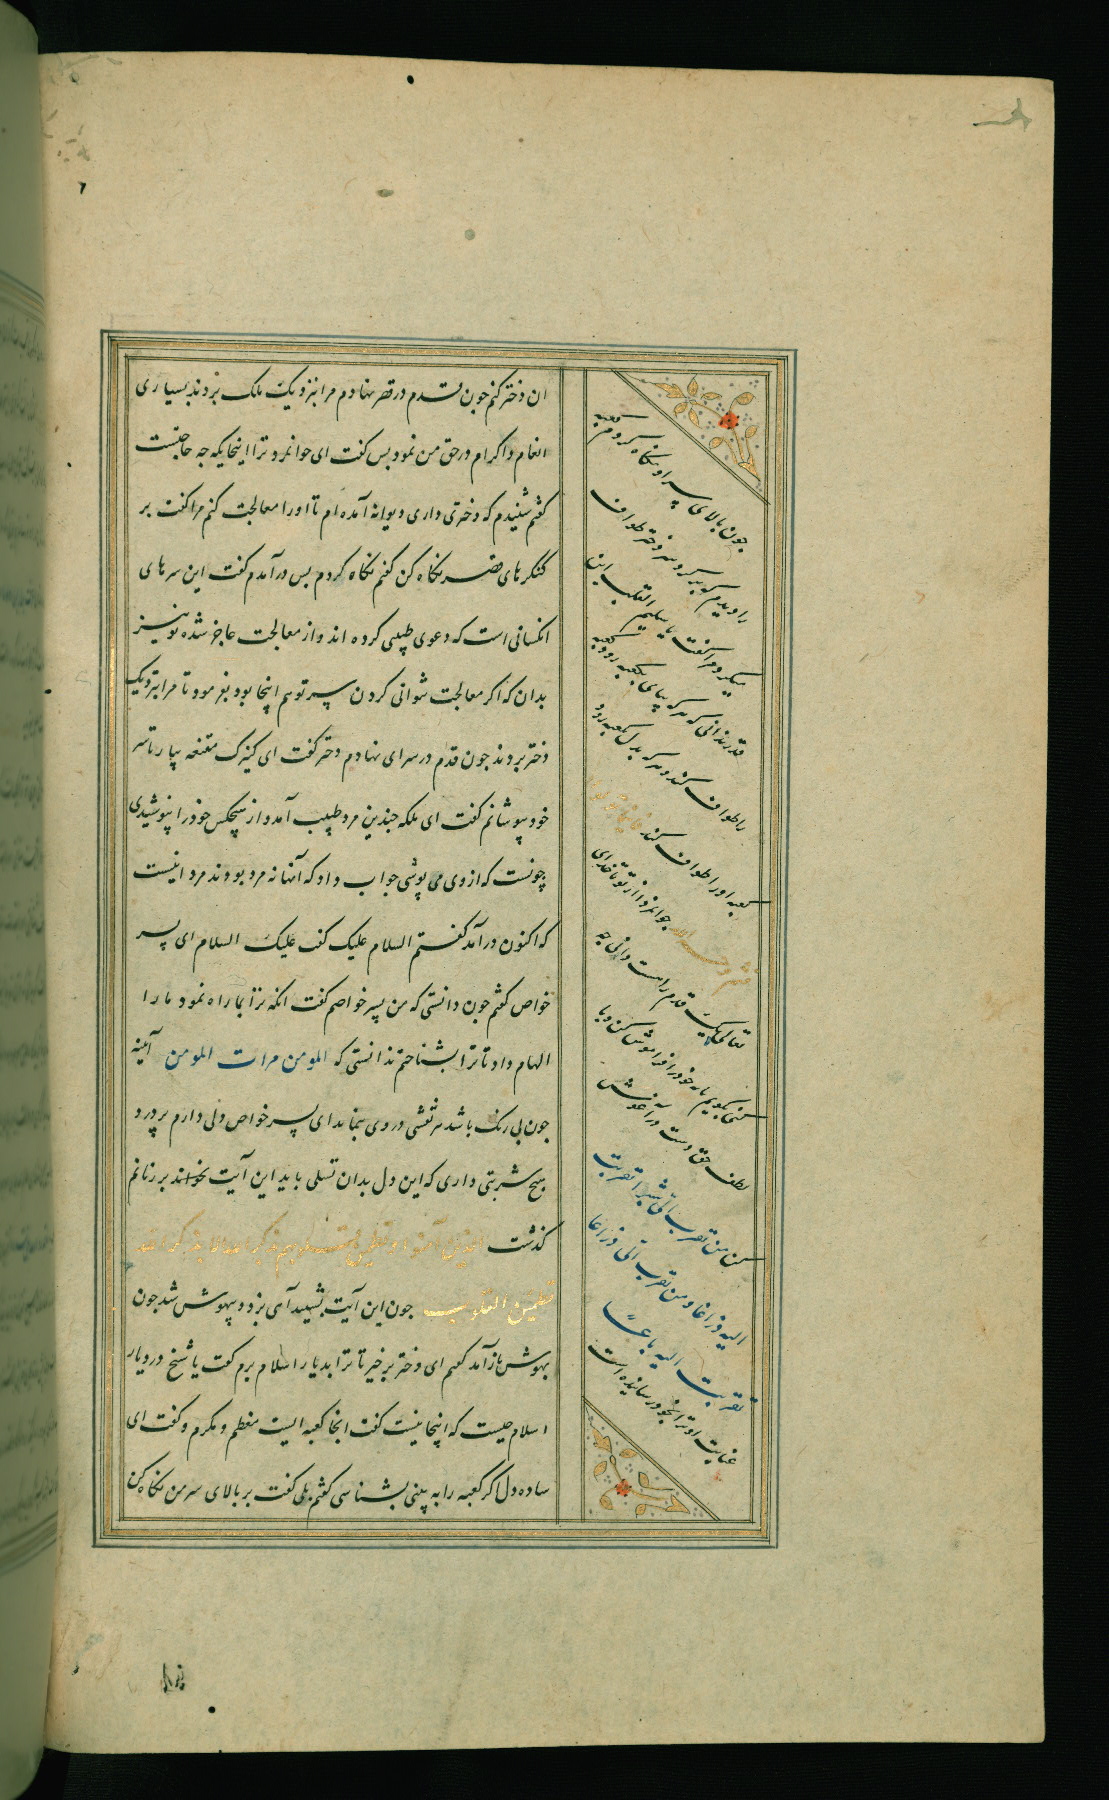 ان دختر کنم جون قدم در قصر نهادم مرا بنزدیک ملک بردند بسیاری
انعام و اکرام در حق من نمود پس کفت ای جوانمرد ترا اینجایکه جه حاجتست
کفتم شنیدم که دختری داری دیوانه آمده ام تا اورا معالجت کنم مرا کفت بر
کنکرهای قصر نکاه کن کفتم نکاه کردم پس درآمدم کفت این سرهای
انکسانی است که دعوی طبیبی کرده اند و از معالجت عاجز شده تو نیز
بدان که اکر معالجت نتوانی کردن سر تو هم اینجا بود بفرمود تا مرا بنزدیک
دختر بردند جون قدم در سرای نهادم دختر کفت ای کنیزک مقنعه بیار تا سر
خود بپوشانم کفت ای ملکه جندین مرد طبیب آمد و از هیچکس خود را نپوشیدی
چونست که از وی می پوشی جواب داد که آنها نه مرد بودند مرد اینست
که اکنون درآمد کفتم السلام علیک کفت علیک السلام ای پسر
خواص کفتم جون دانستی که من پسر خواصم کفت انکه ترا بما راه نمود ما را
الهام داد تا ترا بشناختم ندانستی که المومن مرات المومن آینه
جون بی رنک باشد هر نقشی در وی بنماید ای پسر خواص دلی دارم پر درد
هیچ شربتی داری که این دل بدان تسلی یابد این آیت بر زبانم
کذشت الذین آمنوا و تطمئن قلوبهم بذکر الله الا بذکر الله
تطمئن القلوب جون این آیت بشنید آهی بزد و بیهوش شد جون
بهوش بازآمد کفتم ای دختر برخیز تا ترا بدیار اسلام برم کفت یا شیخ در دیار
اسلام جیست که اینجا نیست کفت انجا کعبه ایست معظم و مکرم و کفت ای
ساده دل اکر کعبه را به بینی بشناسی کفتم بلی کفت بر بالای سر من نکاه کن
جون بالای سر او نکاه کردم کعبه
را دیدم که بر کرد سر دختر طواف
میکرد مرا کفت یا سلیم القلب این
قدر ندانی که هر که بپای بکعبه رود کعبه
را طواف کند و هر که بدل بکعبه رود
کعبه او را طواف کند
جوانمردا از تو تا خدای
تعالی یک قدم راست دانی جه
میکویم خود را فراموش کن و با
لطف حق دست در آغوش
کن من تقرب الی شبرا تقربت
الیه ذراعا و من تقرب الی ذراعا
تقربت الیه باعا
عنایت او ترا بخود رسانیده است